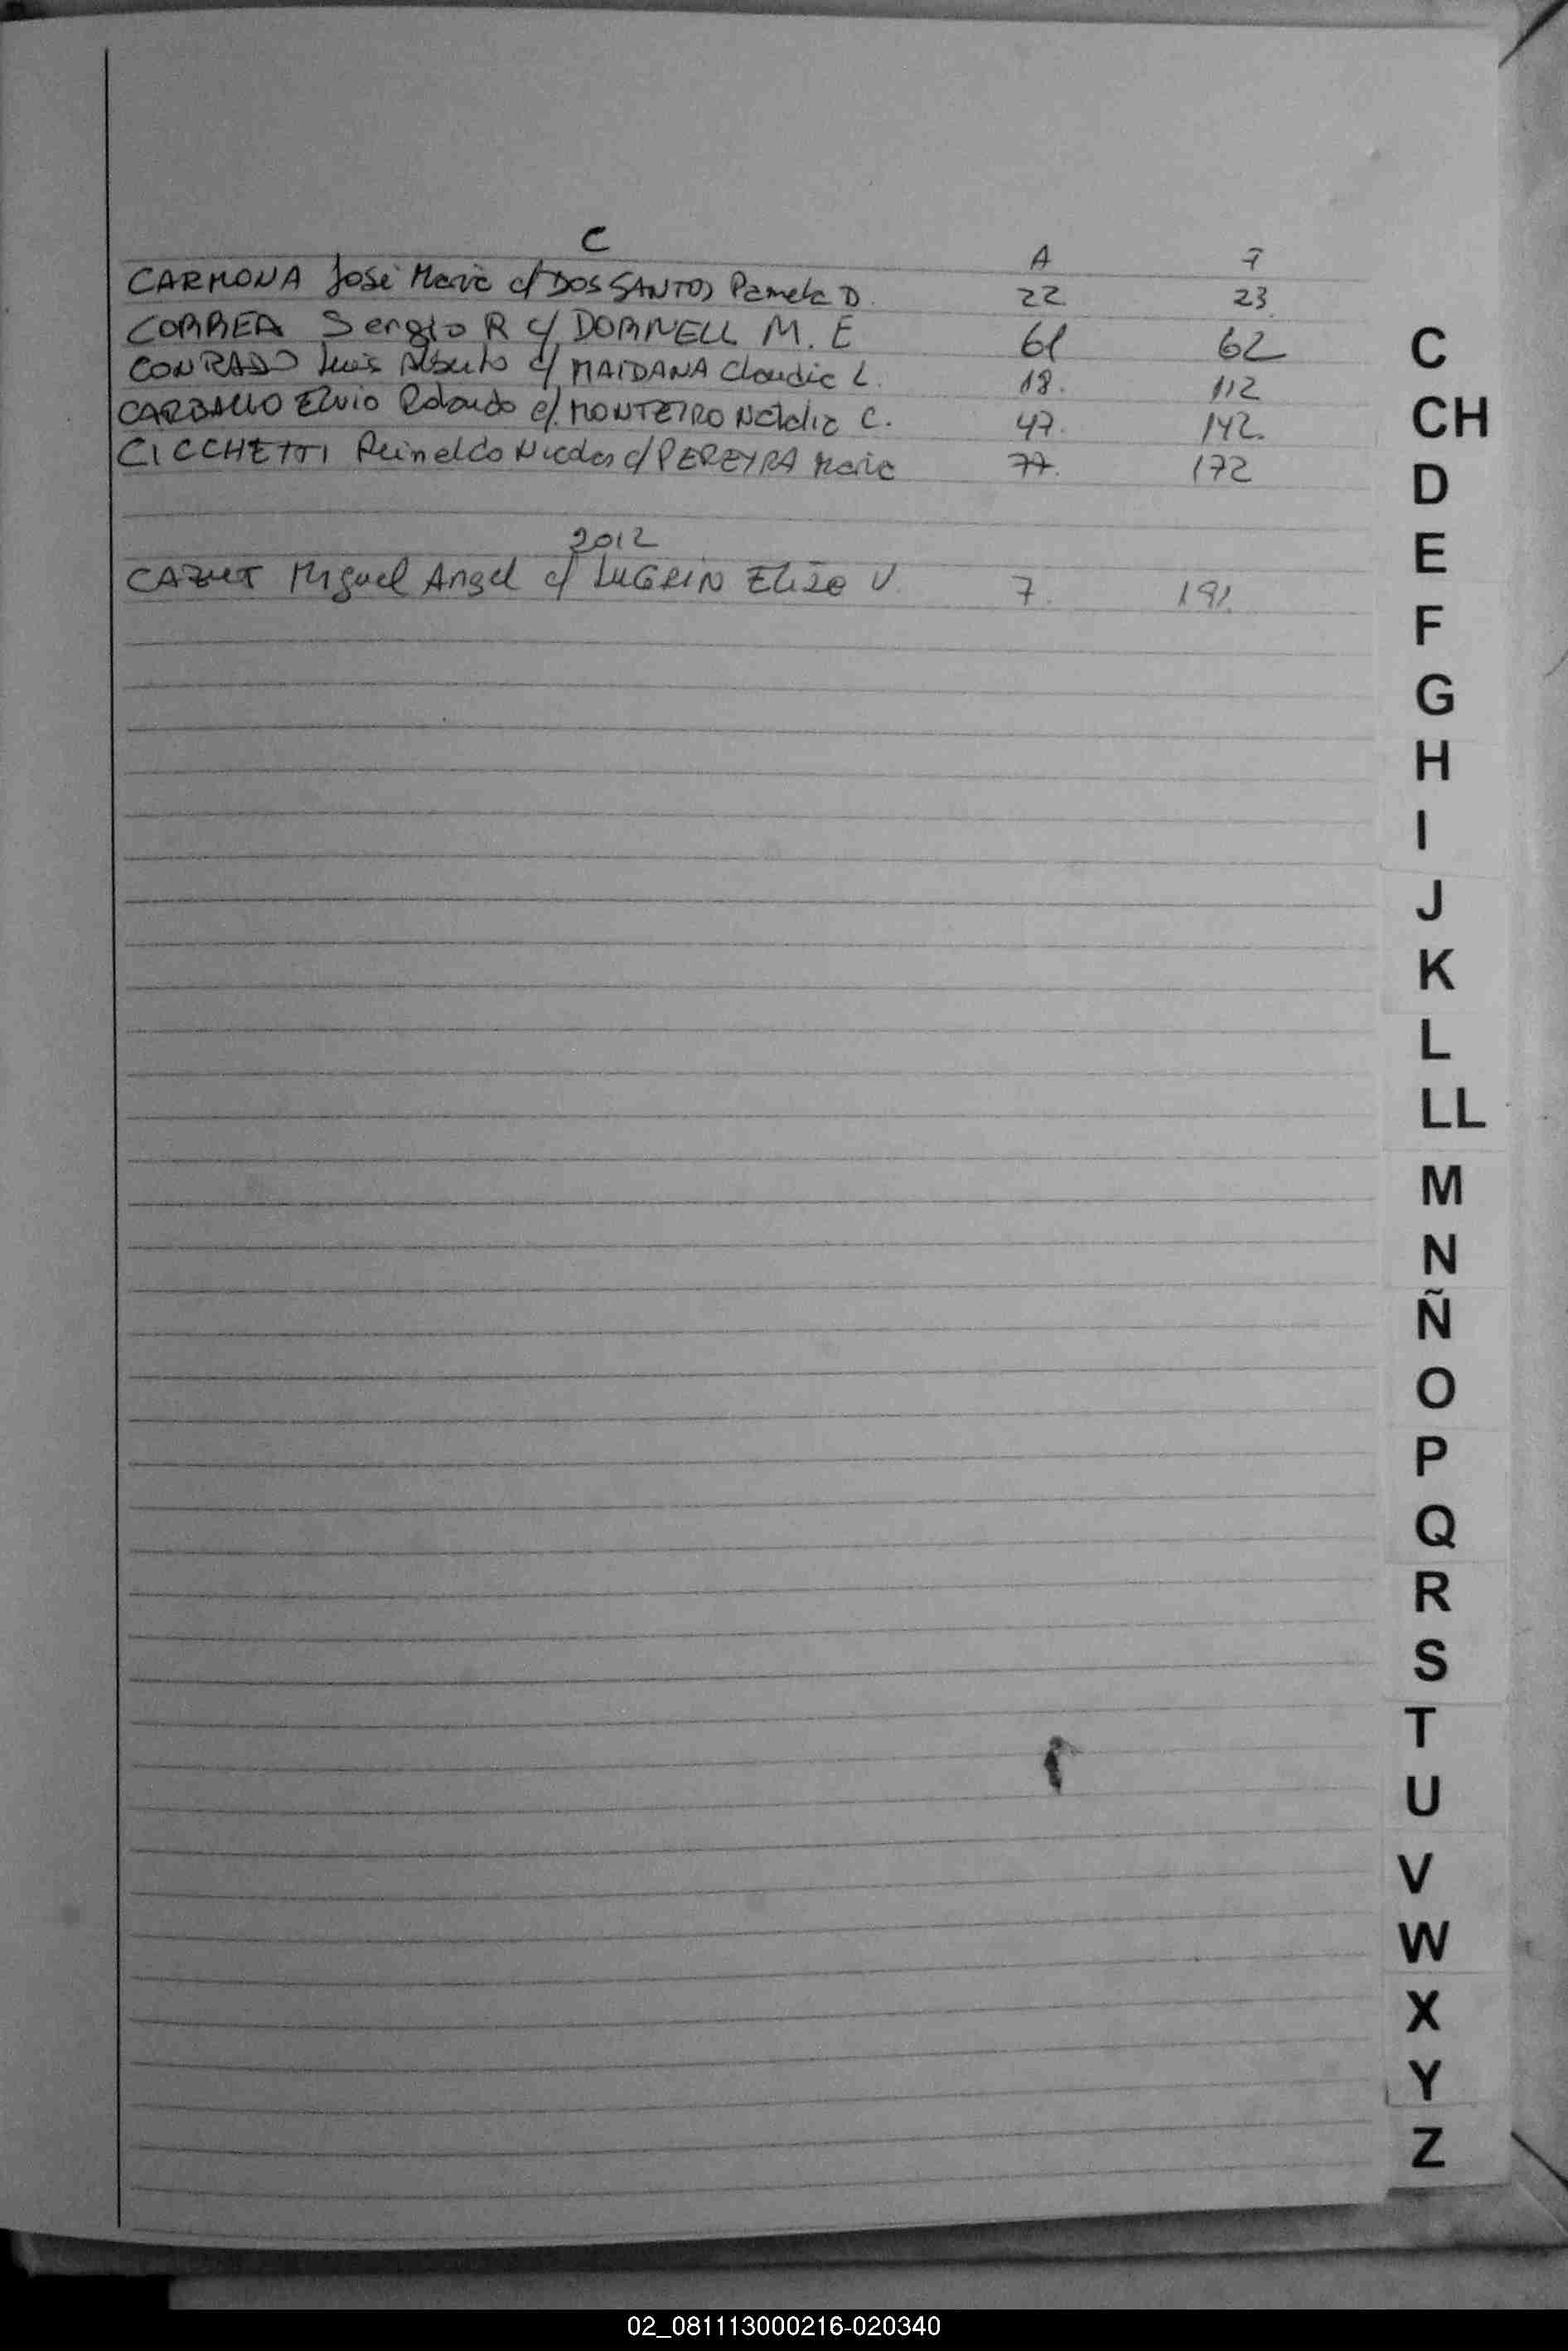 C
A F
CARMONA José Maria c/ DOS SANTOS Pamela D. 22 23
CORREA Sergio R c/ DORNELL M. E 61 62
CONRADO Luis Alberto c/ MAIDANA Claudia L. 18. 112
CARBALLO Elvio Rolando c/. MONTEIRO Natalia C. 47. 142.
CICCHETTI Reinaldo Nicolas c/ PEREYRA Maria 77. 172
2012
CAZUT Miguel Angel c/ LUGRIN Elisa V. 7. 191.
C
CH
D
E
F
G
H
I
J
K
L
LL
M
N
Ñ
O
P
Q
R
S
T
U
V
W
X
Y
Z
02_081113000216-020340